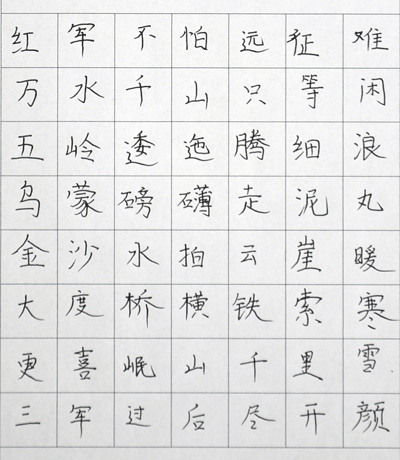 红军不怕远征难
万水千山只等闲
五岭逶迤腾细浪
乌蒙磅礴走泥丸
金沙水拍云崖暖
大度桥横铁索寒
更喜岷山千里雪
三军过后尽开颜